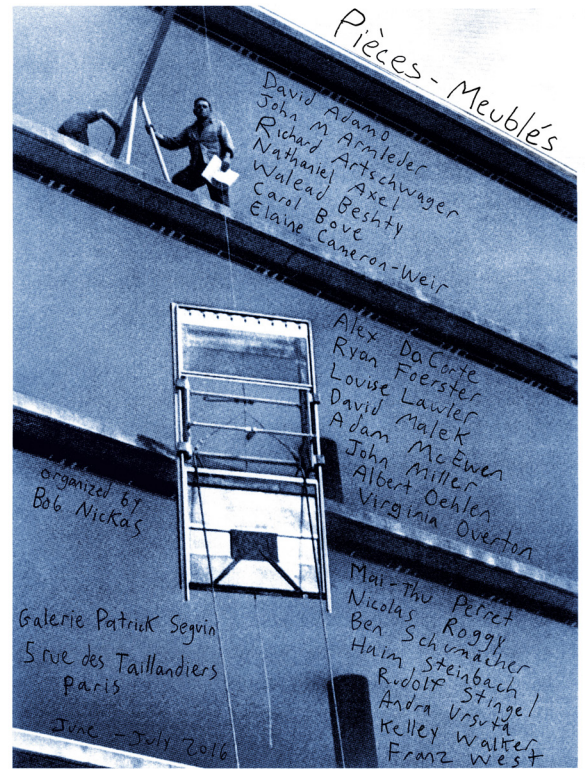 Pièces-Meublés
David Adamo
John M Armleder
Richard Artschwager
Nathaniel Axel
Walead Beshty
Carol Bove
Elaine Cameron-Weir
Alex DaCorte
Ryan Foerster
Louise Lawler
David Malek
Adam McEwen
John Miller
Albert Oehlen
Virginia Overton
organized by
Bob Nickas
Mai-Thu Perret
Nicolas Roggy
Ben Schumacher
Haim Steinbach
Rudolf Stingel
Andra Ursuta
Kelley Walker
Franz West
Galerie Patrick Seguin
5 rue des Taillandiers
Paris
June - July 2016